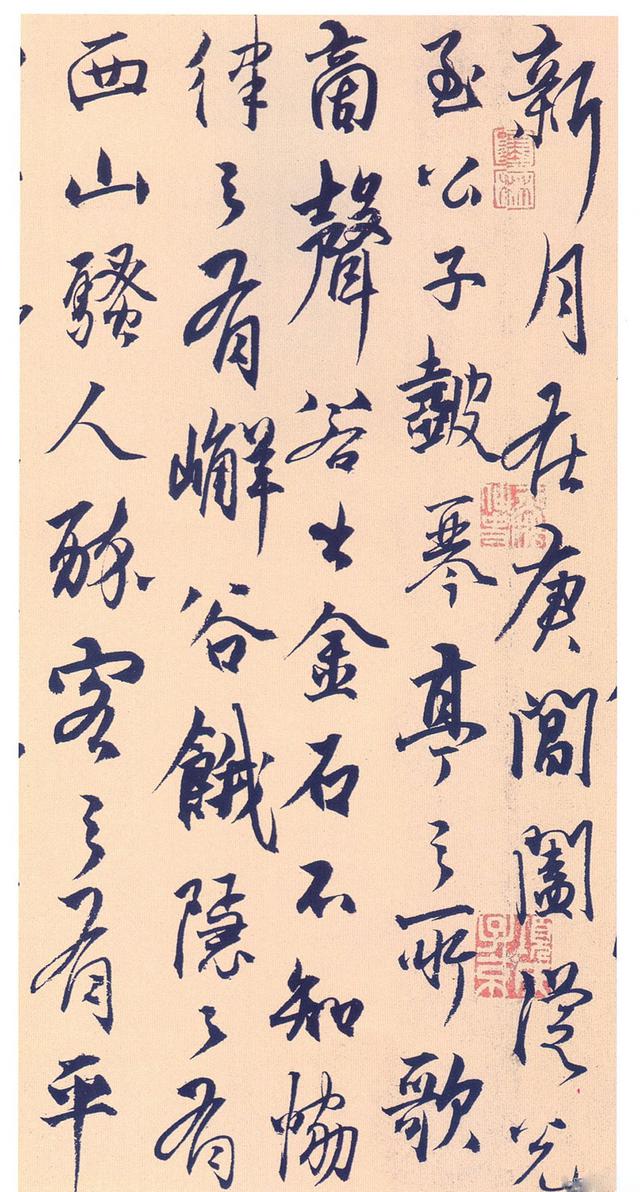 新月在庚閶闔光
至公子鼓琴亭之所歌
商聲若出金石不知協
律之有嶰谷餓隱之有
西山騷人醉客之有平